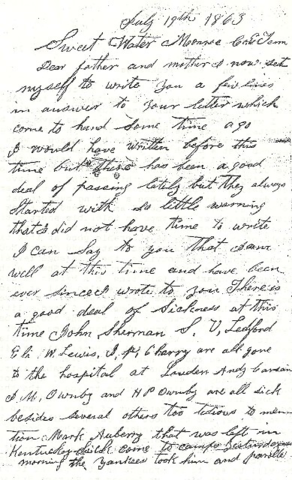 July 19th 1863
Sweet Water Monroe Co E Tenn
Dear father and mother I now set
myself to write you a few lines
in answer to your letter which
come to hand Some time ago
I would have written before this
time but there has been a good
deal of passing lately but they always
Started with so little warning
that I did not have time to write
I can Say to you that I am
well at this time and have been
ever since I wrote to you There is
a good deal of Sickness at this
time John Sherman S. V. Ledford
W. Lewis, J. P. Charry are all gone
to the hospital at Louden Andy
J. M. Ownby and H P Ownby are all sick
besides several others too tedious to men
tion. Mark Auberry that was left in
Kentucky sick come to camps yesterday
morning the Yankees took him and